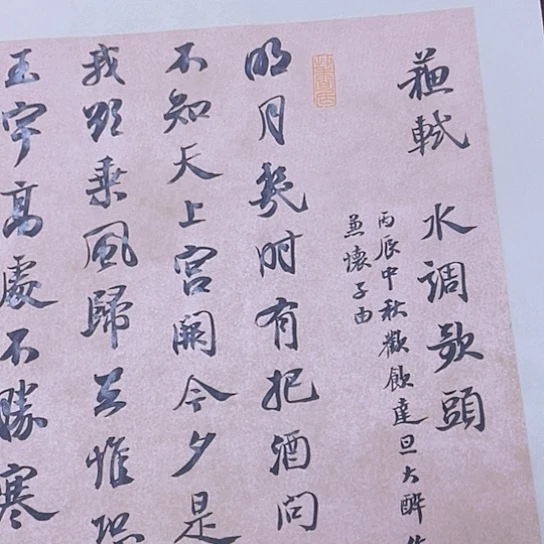 蘇軾 水調歌頭
丙辰中秋歡飲達旦大醉作
兼懷子由
明月幾時有把酒問
不知天上宮闕今夕是
我欲乘風歸去惟恐
玉宇高處不勝寒